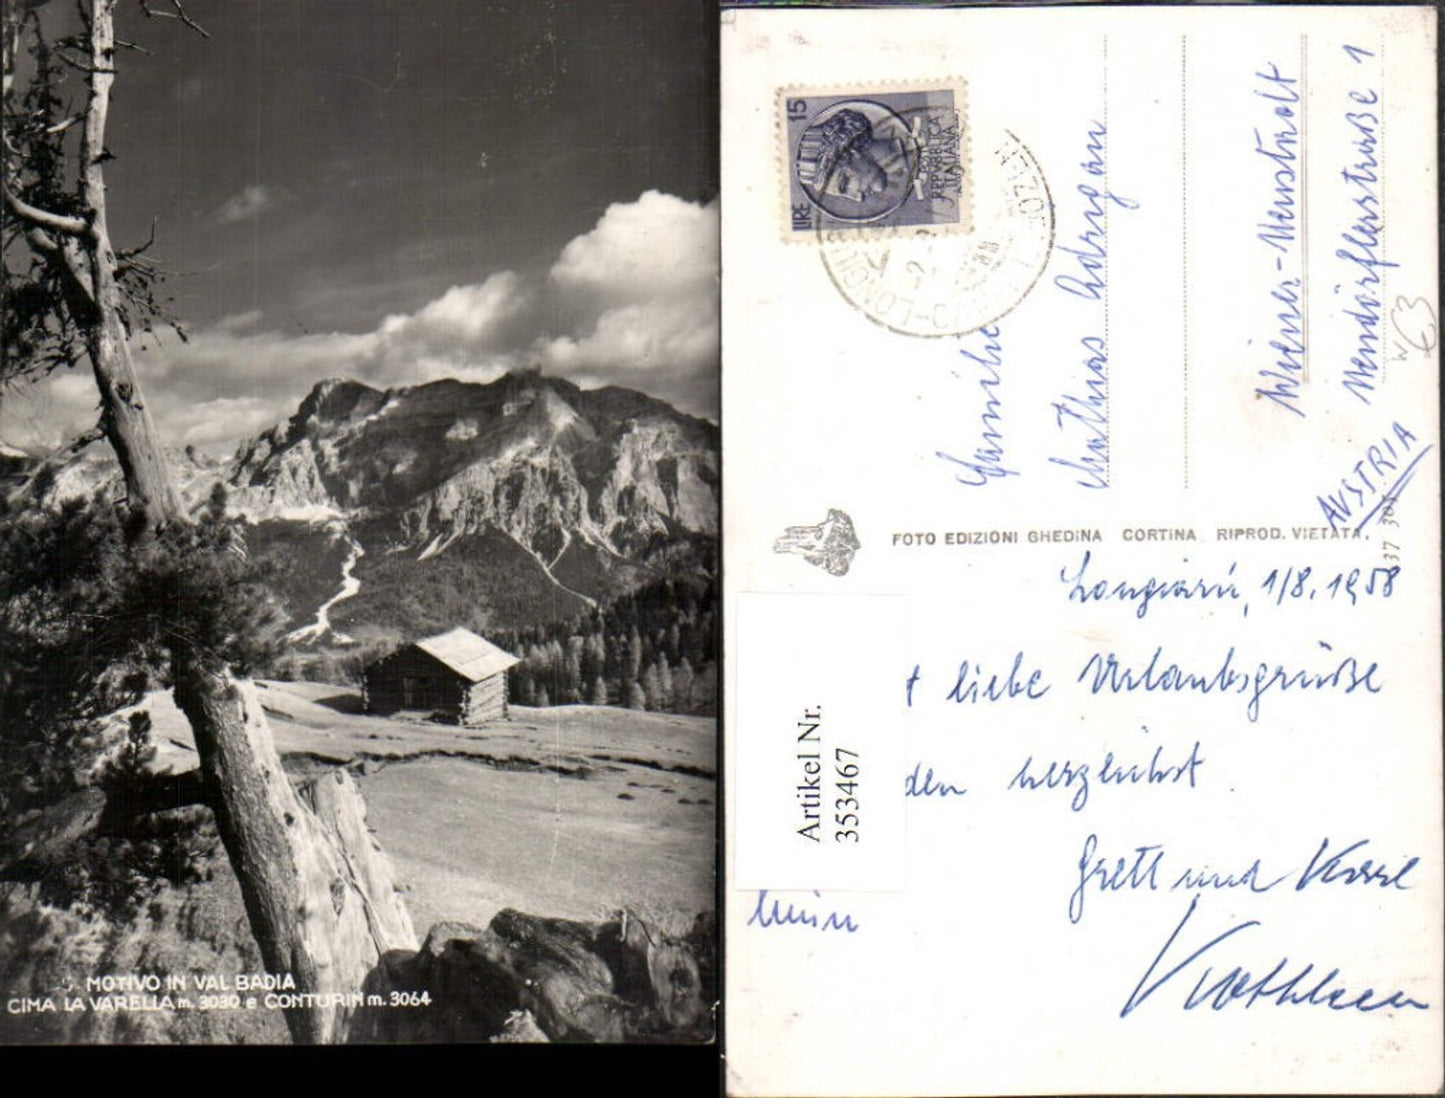 MOTIVO IN VAL BADIA
CIMA LA VARELLA m. 3030 e CONTURIN m. 3064
15
LIRE
REPUBBLICA
ITALIANA
Familie
Mathias
Wiener-Neustadt
Nendörflerstraße 1
AUSTRIA
€3
FOTO EDIZIONI GHEDINA CORTINA RIPROD. VIETATA.
37 30
Longiarù, 1/8. 1958
t liebe Urlaubsgrüße
den herzlichst
Gretl und Karl
Artikel Nr.
353467